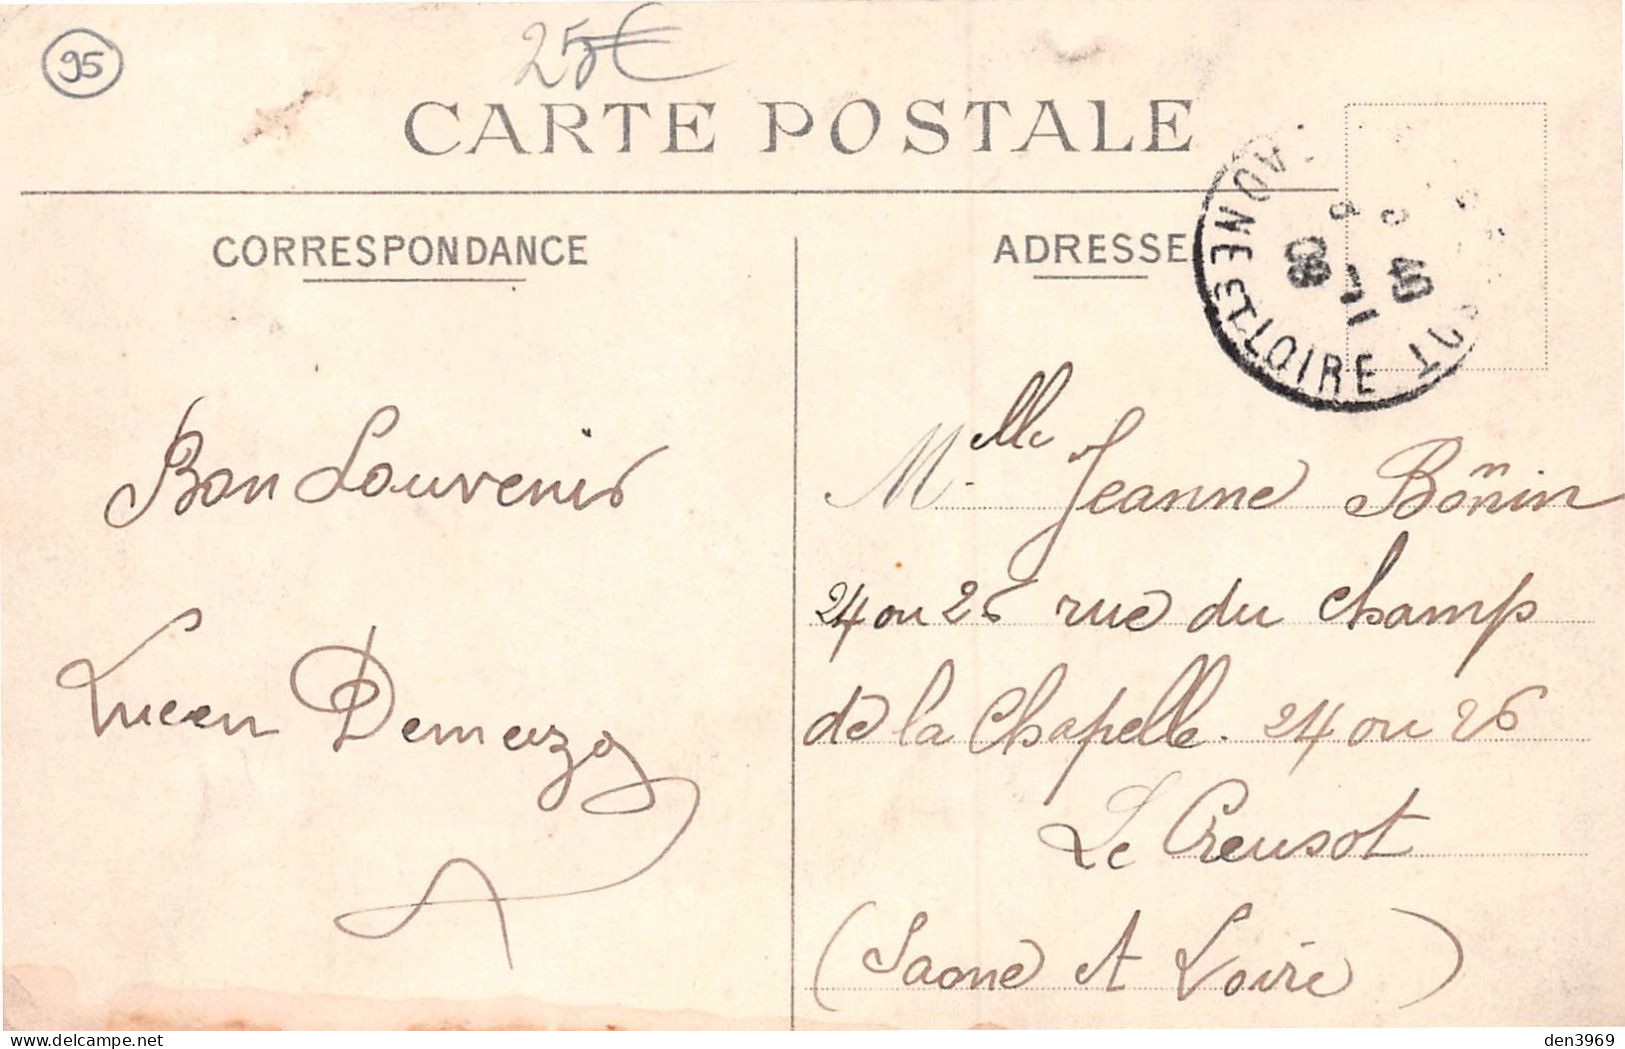 95
25€
CARTE POSTALE
CORRESPONDANCE
ADRESSE
SAONE ET LOIRE
Bon Souvenir
Lucien
Mlle Jeanne Bonnin
24 ou 26 rue du Champ
de la Chapelle. 24 ou 26
Le Creusot
(Saone et Loire)
delcampe.net
den3969